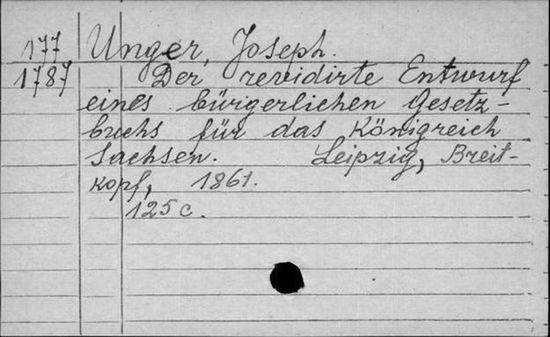 177 Unger, Joseph.
1787 Der revidirte Entwurf
eines bürgerlichen Gesetz-
buchs für das Königreich
Sachsen. Leipzig, Breit-
kopf, 1861.
125 c.